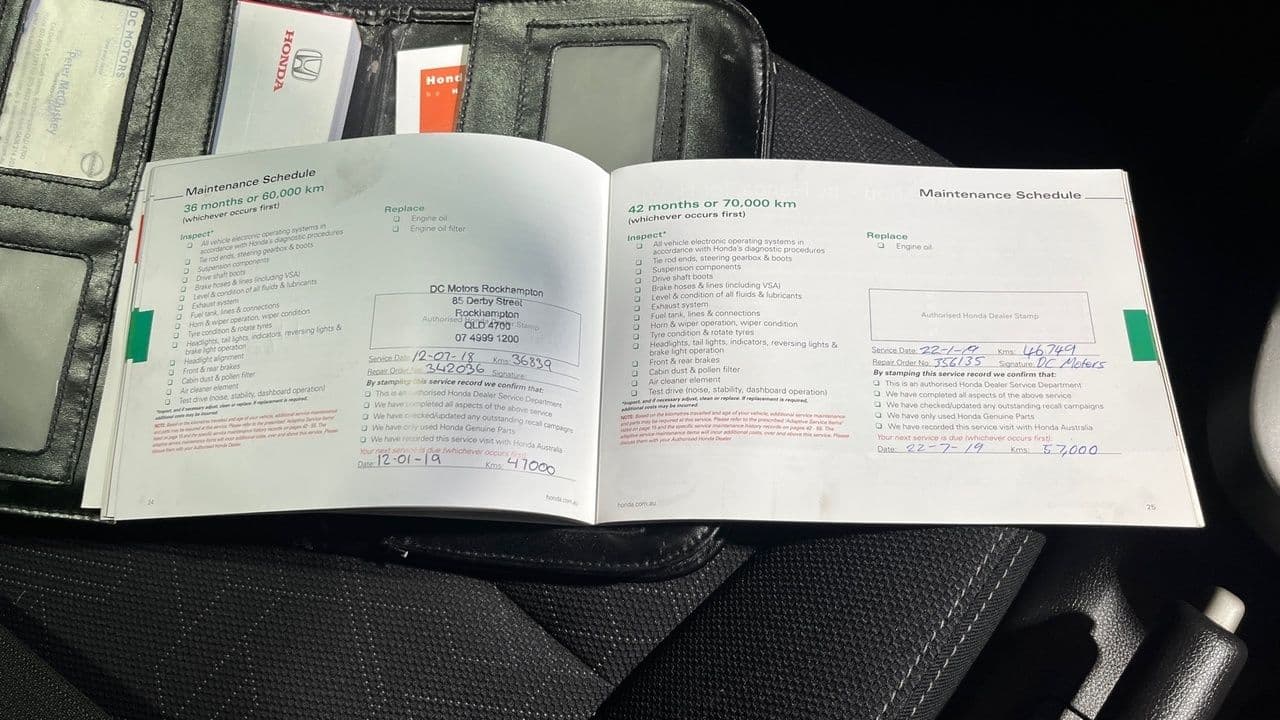 DC MOTORS
Peter McCluskey
HONDA
Hond
Maintenance Schedule
36 months or 60,000 km
(whichever occurs first)
Inspect*
❏ All vehicle electronic operating systems in
accordance with Honda's diagnostic procedures
❏ Tie rod ends, steering gearbox & boots
❏ Suspension components
❏ Drive shaft boots
❏ Brake hoses & lines (including VSA)
❏ Level & condition of all fluids & lubricants
❏ Exhaust system
❏ Fuel tank, lines & connections
❏ Horn & wiper operation, wiper condition
❏ Tyre condition & rotate tyres
❏ Headlights, tail lights, indicators, reversing lights &
brake light operation
❏ Headlight alignment
❏ Front & rear brakes
❏ Cabin dust & pollen filter
❏ Air cleaner element
❏ Test drive (noise, stability, dashboard operation)
*Inspect, and if necessary adjust, clean or replace. If replacement is required,
additional costs may be incurred.
NOTE: Based on the kilometres travelled and age of your vehicle, additional service maintenance
and parts may be required at this service. Please refer to the prescribed 'Adaptive Service Items'
listed on page 15 and the specific service maintenance history records on pages 42 - 55. The
adaptive service maintenance items will incur additional costs, over and above this service. Please
discuss them with your Authorised Honda Dealer.
24
Replace
❏ Engine oil
❏ Engine oil filter
DC Motors Rockhampton
85 Derby Street
Rockhampton
Authorised Honda Dealer Stamp
QLD 4700
07 4999 1200
Service Date: 12-07-18 Kms: 36839
Repair Order No: 342036 Signature:
By stamping this service record we confirm that:
❏ This is an authorised Honda Dealer Service Department
❏ We have completed all aspects of the above service
❏ We have checked/updated any outstanding recall campaigns
❏ We have only used Honda Genuine Parts
❏ We have recorded this service visit with Honda Australia
Your next service is due (whichever occurs first):
Date: 12-01-19 Kms: 47000
honda.com.au
Maintenance Schedule
42 months or 70,000 km
(whichever occurs first)
Inspect*
❏ All vehicle electronic operating systems in
accordance with Honda's diagnostic procedures
❏ Tie rod ends, steering gearbox & boots
❏ Suspension components
❏ Drive shaft boots
❏ Brake hoses & lines (including VSA)
❏ Level & condition of all fluids & lubricants
❏ Exhaust system
❏ Fuel tank, lines & connections
❏ Horn & wiper operation, wiper condition
❏ Tyre condition & rotate tyres
❏ Headlights, tail lights, indicators, reversing lights &
brake light operation
❏ Front & rear brakes
❏ Cabin dust & pollen filter
❏ Air cleaner element
❏ Test drive (noise, stability, dashboard operation)
*Inspect, and if necessary adjust, clean or replace. If replacement is required,
additional costs may be incurred.
NOTE: Based on the kilometres travelled and age of your vehicle, additional service maintenance
and parts may be required at this service. Please refer to the prescribed 'Adaptive Service Items'
listed on page 15 and the specific service maintenance history records on pages 42 - 55. The
adaptive service maintenance items will incur additional costs, over and above this service. Please
discuss them with your Authorised Honda Dealer
honda.com.au
Replace
❏ Engine oil
Authorised Honda Dealer Stamp
Service Date: 22-1-19 Kms: 46749
Repair Order No: 356135 Signature: DC Motors
By stamping this service record we confirm that:
❏ This is an authorised Honda Dealer Service Department
❏ We have completed all aspects of the above service
❏ We have checked/updated any outstanding recall campaigns
❏ We have only used Honda Genuine Parts
❏ We have recorded this service visit with Honda Australia
Your next service is due (whichever occurs first):
Date: 22-7-19 Kms: 57,000
25